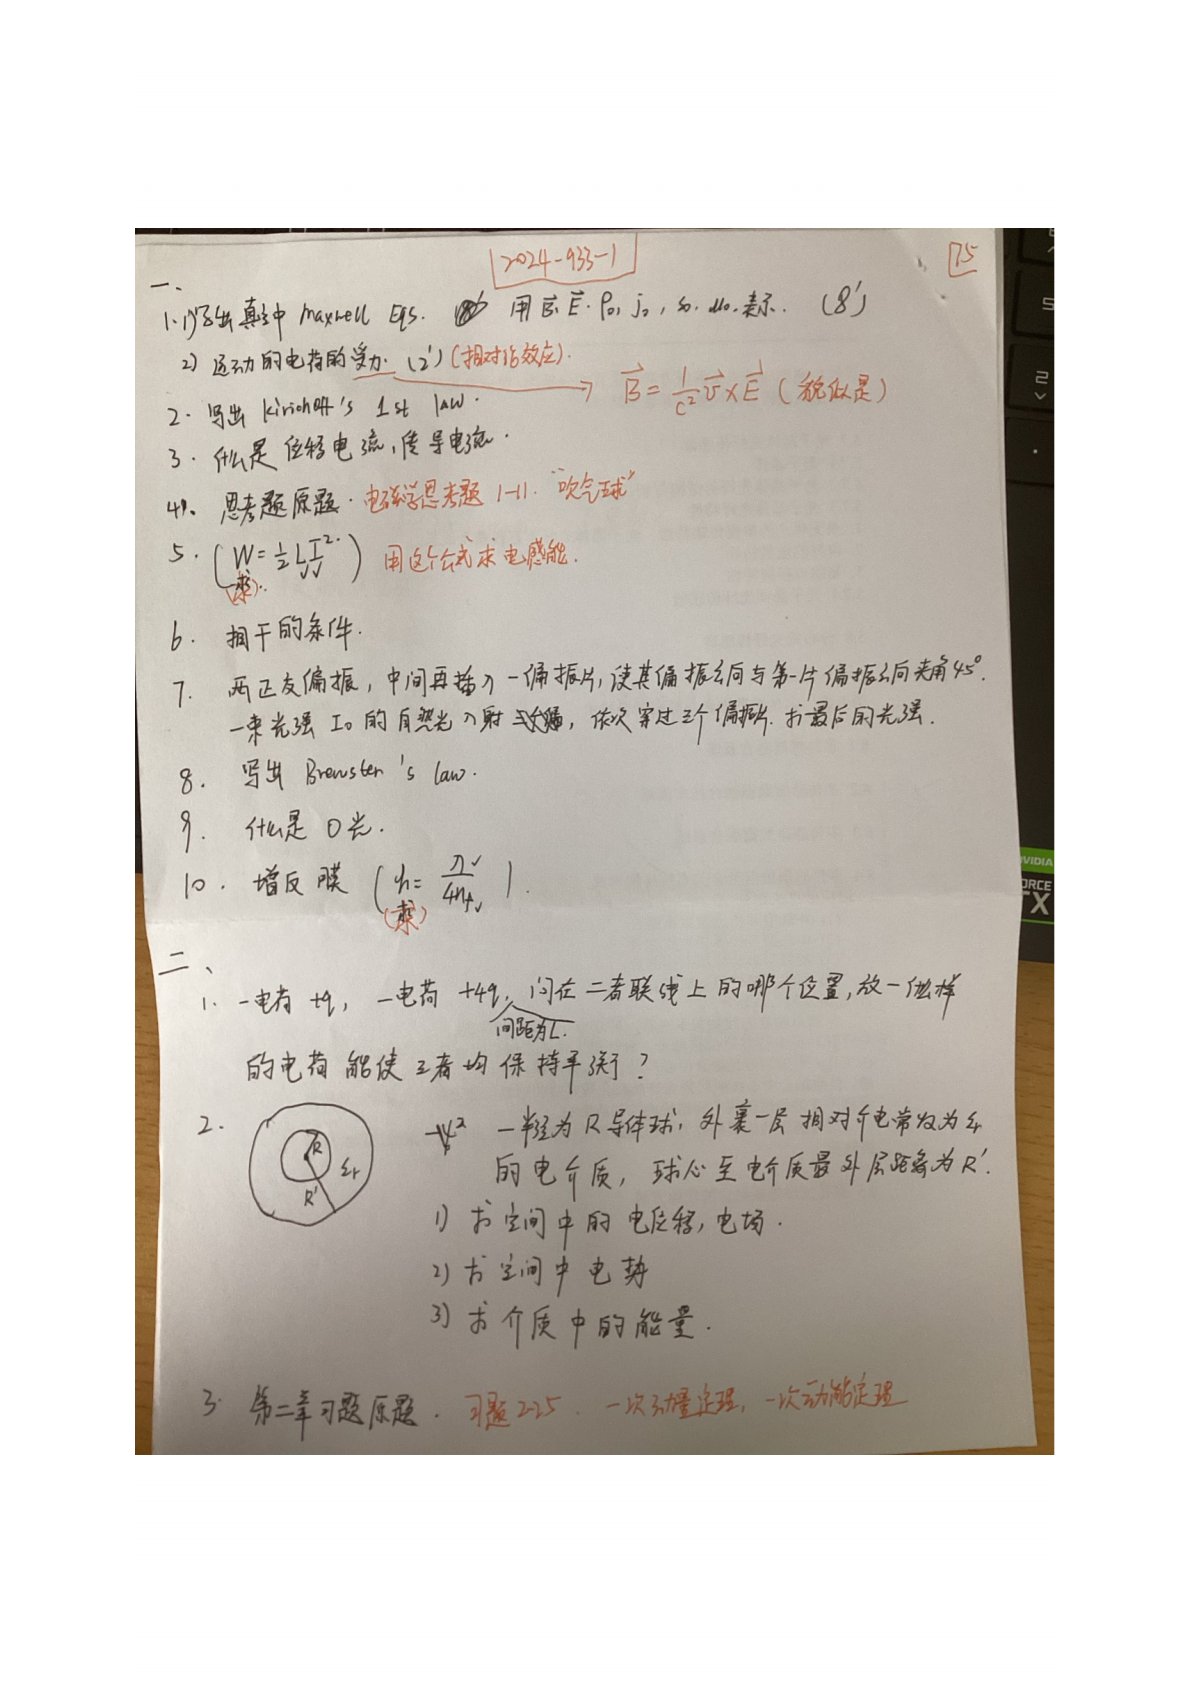 2024-933-1
75
一、
1. 1)写出真空中 Maxwell Eqs. 用 B⃗, E⃗, ρ0, j0, ε0, μ0, 表示. (8')
2) 运动的电荷的受力. (2') (相对论效应).
B⃗ = 1/c² v⃗×E⃗ (貌似是)
2. 写出 Kirichoff's 1st law.
3. 什么是位移电流, 传导电流.
4. 思考题原题. 电磁学思考题 1-11. "吹气球"
5. (W = 1/2 LI².) 用这个公式求电感能.
(求).
6. 相干的条件.
7. 两正交偏振, 中间再插入一偏振片, 使其偏振方向与第一片偏振方向夹角45°.
一束光强 I0 的自然光入射, 依次穿过三个偏振片. 求最后的光强.
8. 写出 Brewster's law.
9. 什么是 O光.
10. 增反膜 (h = λ/4n).
(求)
二、
1. 一电荷 +q, 一电荷 +4q, 问在二者联线上的哪个位置, 放一什么样
间距为L.
的电荷能使三者均保持平衡?
2. 一半径为R导体球, 外裹一层相对介电常数为εr
R
εr
R'
的电介质, 球心至电介质最外层距离为R'.
1) 求空间中的电位移, 电场.
2) 求空间中电势
3) 求介质中的能量.
3. 第二章习题原题. 习题2-25. 一次动量定理, 一次动能定理
NVIDIA